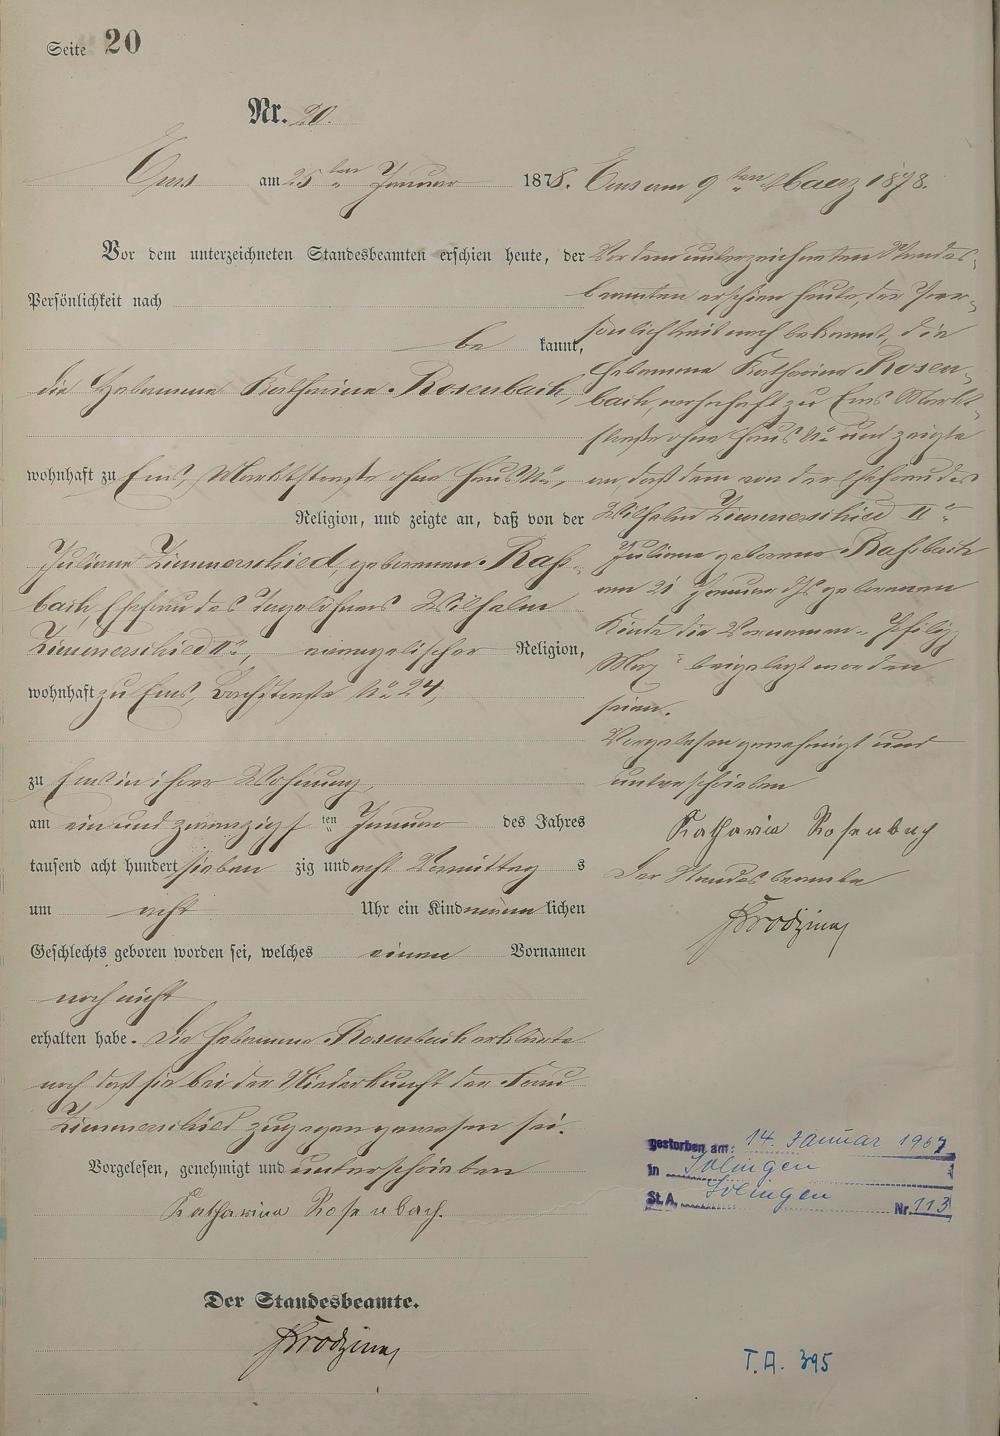 Seite 20
Nr. 20.
Ems am 25ten Januar 1878.
Vor dem unterzeichneten Standesbeamten erschien heute, der
Persönlichkeit nach
be kannt,
die Hebamme Katharina Rosenbach,
wohnhaft zu Ems, Marktstraße ohne Haus No,
Religion, und zeigte an, daß von der
Juliane Zimmerschied, geborenen Rahs-
bach, Ehefrau des Tagelöhners Wilhelm
Zimmerschied IIr, evangelischer Religion,
wohnhaft zu Ems, Bachstraße No 24,
zu Ems in ihrer Wohnung
am ein und zwanzigsten Januar des Jahres
tausend acht hundert sieben zig und acht Vormittag s
um acht Uhr ein Kind männlichen
Geschlechts geboren worden sei, welches einen Vornamen
noch nicht
erhalten habe. Die Hebamme Rosenbach erklärte
noch daß sie bei der Niederkunft der Frau
Zimmerschied zugegen gewesen sei.
Vorgelesen, genehmigt und unterschrieben
Katharina Rosenbach.
Der Standesbeamte.
Ems am 9ten Maerz 1878.
Vor dem unterzeichneten Standes-
beamten erschien heute, der Per-
sönlichkeit nach bekannt, die
Hebamme Katharina Rosen-
bach, wohnhaft zu Ems Markt-
straße ohne Haus No und zeigte
an, daß dem von der Ehefrau des
Wilhelm Zimmerschied IIr
Juliane geborene Rahsbach
am 21 Januar ds geborenen
Kinde die Vornamen "Philipp
Max" beigelegt worden
seien.
Vorgelesen genehmigt und
unterschrieben
Katharina Rosenbach
Der Standesbeamte
gestorben am: 14. Januar 1967
in Solingen
St.A. Solingen Nr. 113
T.A. 395